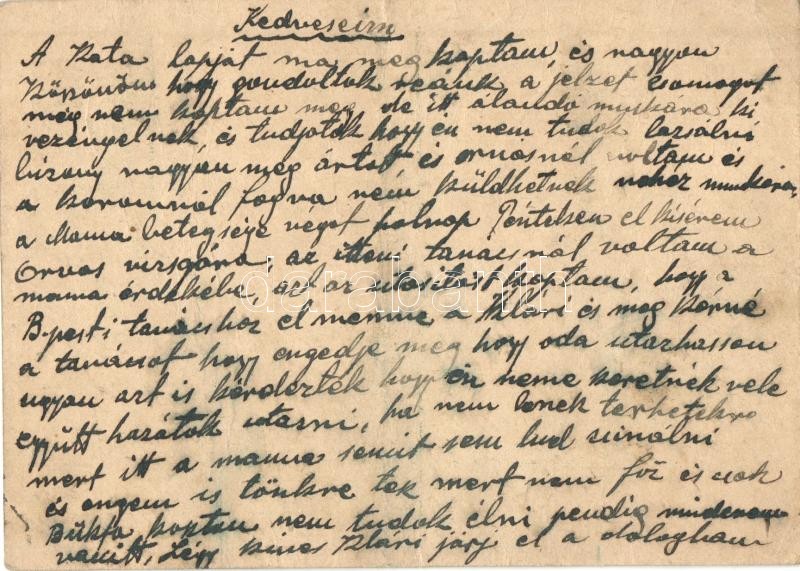 Kedveseim
A Kata lapját ma meg kaptam, és nagyon
Köszönöm hogy gondoltok reánk a jelzet csomagot
még nem kaptam meg de itt álandó munkára ki
vezényelnek, és tudjátok hogy én nem tudok lazsálni
bizony nagyon meg ártot és orvosnál voltam és
a koromnál fogva nem küldhetnek nehéz munkára,
a Mama betegsége véget holnap Pénteken el kisérem
Orvos vizsgára, az itteni tanácsnál voltam a
mama érdekébe, azt az utasitást kaptam, hogy a
B.pesti tanácshoz el menne a Klári és meg kérné
a tanácsot hogy engedje meg hogy oda utazhasson
ugyan azt is kérdezték hogy én neme keretnék vele
együtt hozzátok utazni, ha nem lenék terhetekre
mert itt a mama semit sem tud csinálni
és engem is tönkre tek mert nem főz és csak
Bükfa koptan nem tudok élni pendig mindenem
vanitt, Légy kincs Klári járj el a dologban
darabanth